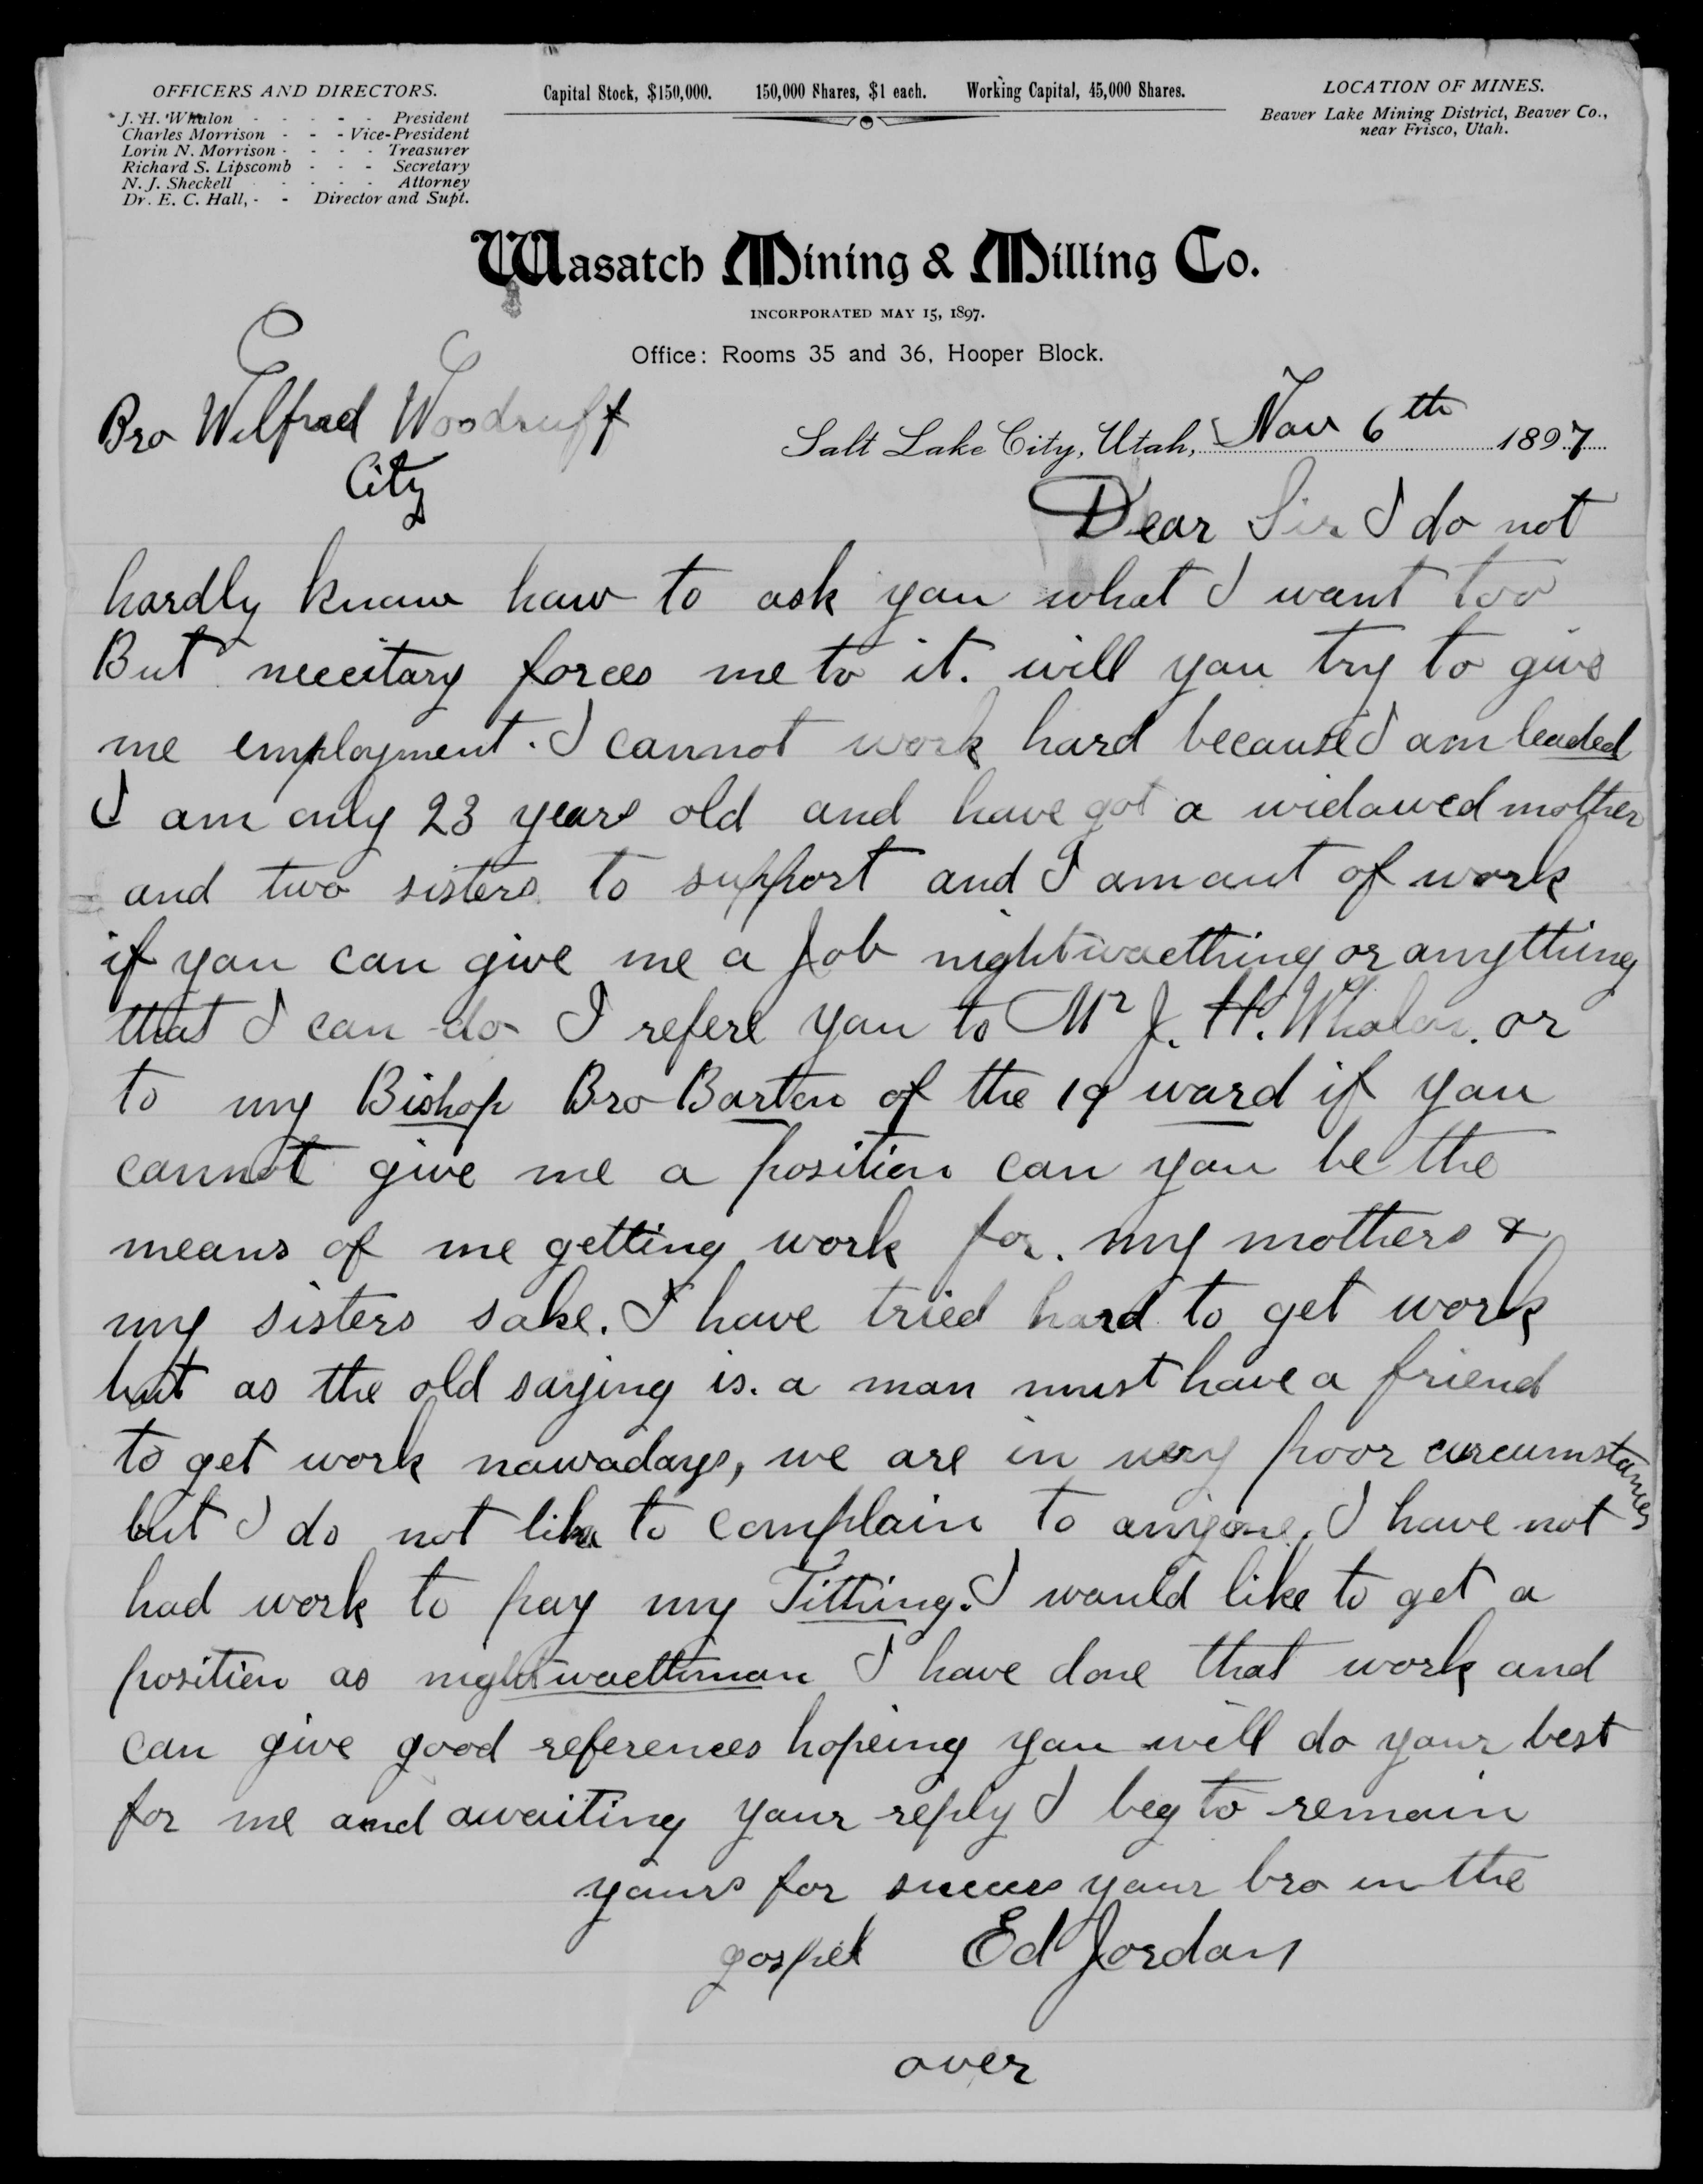 OFFICERS AND DIRECTORS.
J. H. Whalon - - - - - President
Charles Morrison - - - Vice-President
Lorin N. Morrison - - - - Treasurer
Richard S. Lipscomb - - - Secretary
N. J. Sheckell - - - - Attorney
Dr. E. C. Hall, - - Director and Supt.
Capital Stock, $150,000. 150,000 Shares, $1 each. Working Capital, 45,000 Shares.
LOCATION OF MINES.
Beaver Lake Mining District, Beaver Co.,
near Frisco, Utah.
Wasatch Mining & Milling Co.
INCORPORATED MAY 15, 1897.
Office: Rooms 35 and 36, Hooper Block.
Bro Wilfred Woodruff
City
Salt Lake City, Utah, Nov 6th 1897
Dear Sir I do not
hardly know how to ask you what I want too
But neccitary forces me to it. will you try to give
me employment. I cannot work hard because I am leaded
I am only 23 years old and have got a widowed mother
and two sisters to support and I am out of work
if you can give me a Job nightwaetthing or anything
that I can do I refere you to Mr J. H. Whalon. or
to my Bishop Bro Barton of the 19 ward if you
cannot give me a position can you be the
means of me getting work for. my mothers &
my sisters sake. I have tried hard to get work
but as the old saying is. a man must have a friend
to get work nowadays, we are in very poor circumstances
but I do not like to complain to anyone, I have not
had work to pay my Titthing. I would like to get a
position as nightwaetthman I have done that work and
can give good references hopeing you will do your best
for me and awaiting your reply I beg to remain
yours for success your bro in the
gospel Ed Jordan
over